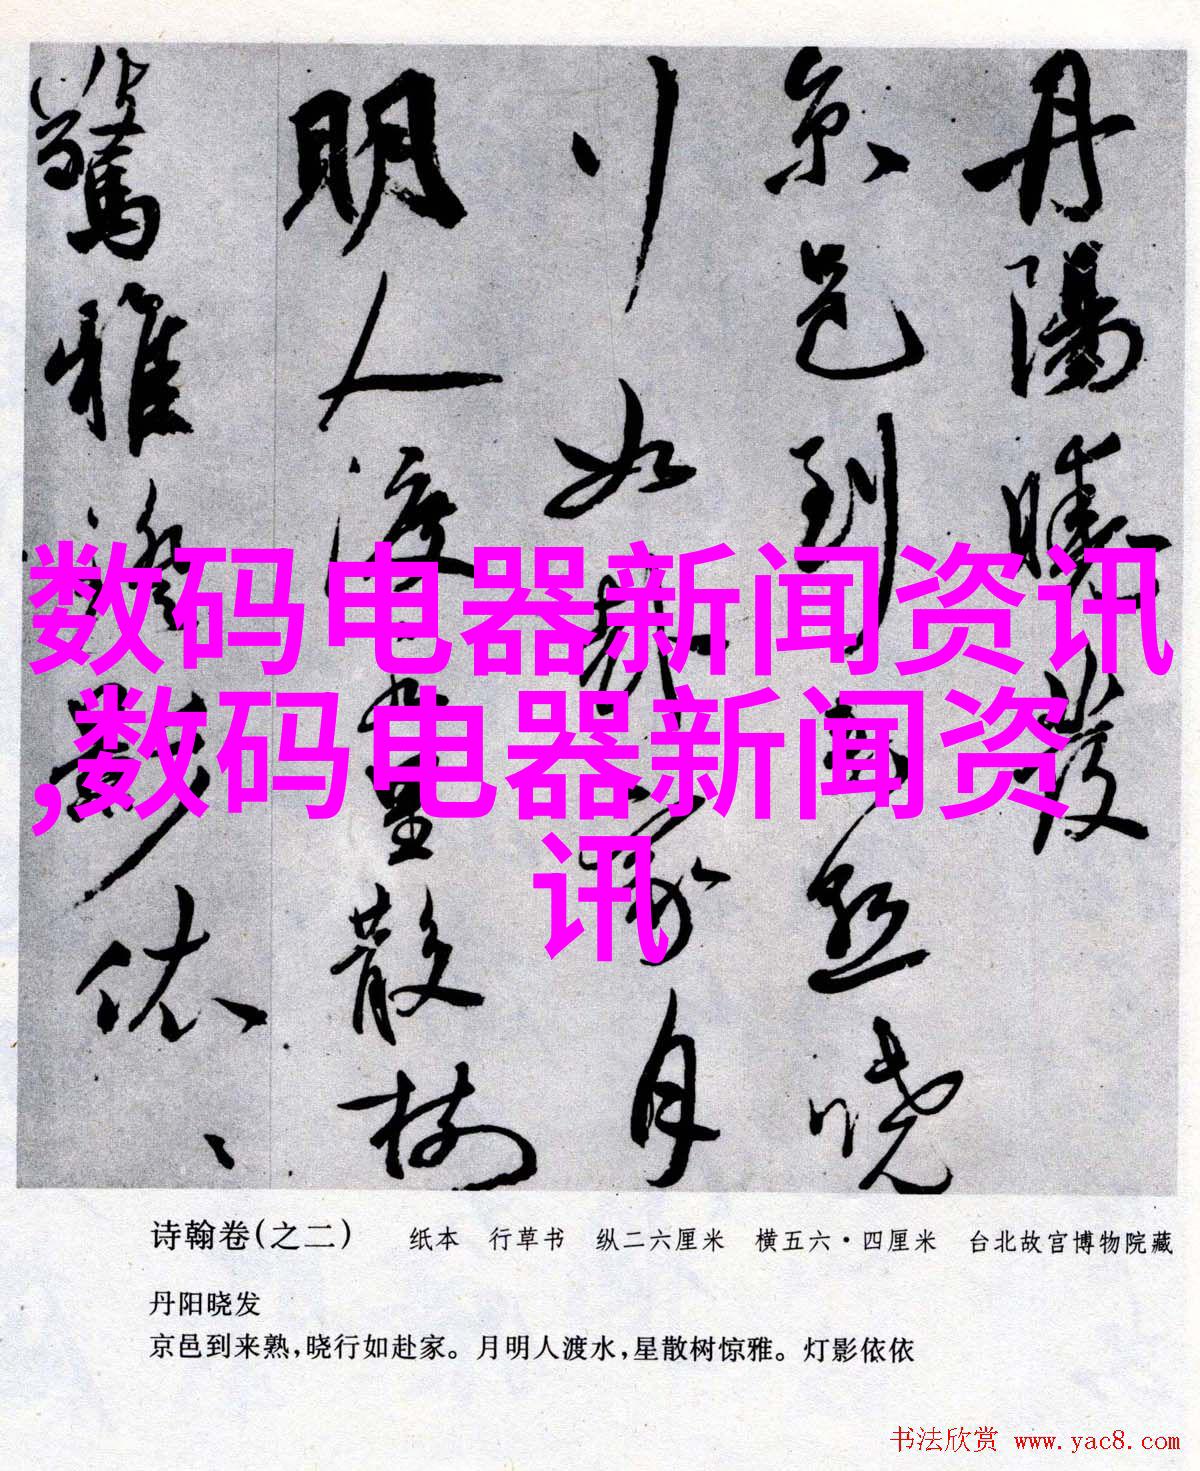 丹陽曉發
京邑到来熟晓
行如赴家月
明人渡水星散樹
驚雅燈影依、、
数码电器新闻资讯
,数码电器新闻资
讯
诗翰卷(之二) 纸本 行草书 纵二六厘米 横五六·四厘米 台北故宫博物院藏
丹阳晓发
京邑到来熟,晓行如赴家。月明人渡水,星散树惊雅。灯影依依
书法欣赏 www.yac8.com